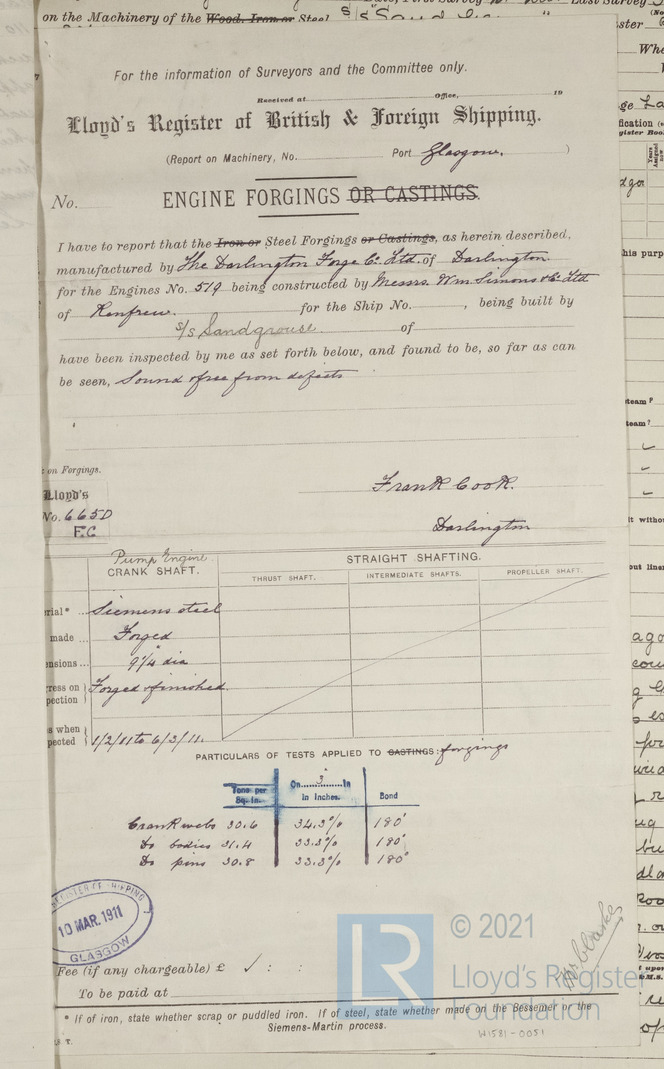 on the Machinery of the Wood, Iron or Steel S/S Sand
For the information of Surveyors and the Committee only.
Received at Office, 19
Lloyd's Register of British & Foreign Shipping.
(Report on Machinery, No. Port Glasgow. )
No. ENGINE FORGINGS OR CASTINGS.
I have to report that the Iron or Steel Forgings or Castings, as herein described,
manufactured by The Darlington Forge Co. Ltd. of Darlington
for the Engines No. 519 being constructed by Messrs. Wm. Simons & Co Ltd
of Renfrew. for the Ship No. , being built by
S/S Sandgrouse. of
have been inspected by me as set forth below, and found to be, so far as can
be seen, Sound & free from defects
on Forgings.
Lloyd's
No. 665D
F.C
Frank Cook.
Darlington
Pump Engine
CRANK SHAFT.
STRAIGHT SHAFTING.
THRUST SHAFT. INTERMEDIATE SHAFTS. PROPELLER SHAFT.
rial* ... Siemens steel
made ... Forged
ensions ... 9 1/4" dia
ress on
pection Forged & finished.
s when
pected 1/2/11 to 6/3/11.
PARTICULARS OF TESTS APPLIED TO CASTINGS: forgings
Tons per
Sq. in.
On 3 In
in Inches.
Bend
Crank webs 30.6 34.3% 180°
Do bodies 31.4 33.3% 180°
Do pins 30.8 33.3% 180°
REGISTER OF SHIPPING
10 MAR. 1911
GLASGOW
Fee (if any chargeable) £ ✓ : :
To be paid at
* If of iron, state whether scrap or puddled iron. If of steel, state whether made on the Bessemer or the
Siemens-Martin process.
© 2021
Lloyd's Register
Foundation
W1581-0051